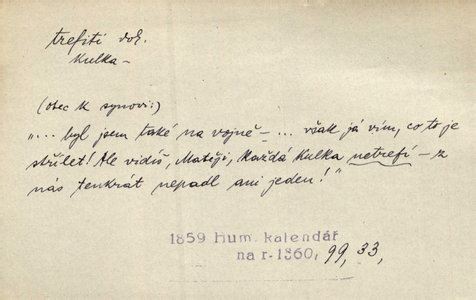 trefiti dok.
Kulka –
(otec k synovi:)
"... byl jsem také na vojně – ... však já vím, co to je
střílet! Ale vidíš, Matěji, každá kulka netrefí – z
nás tenkrát nepadl ani jeden!"
1859 Hum. kalendář
na r. 1860, 99, 33,